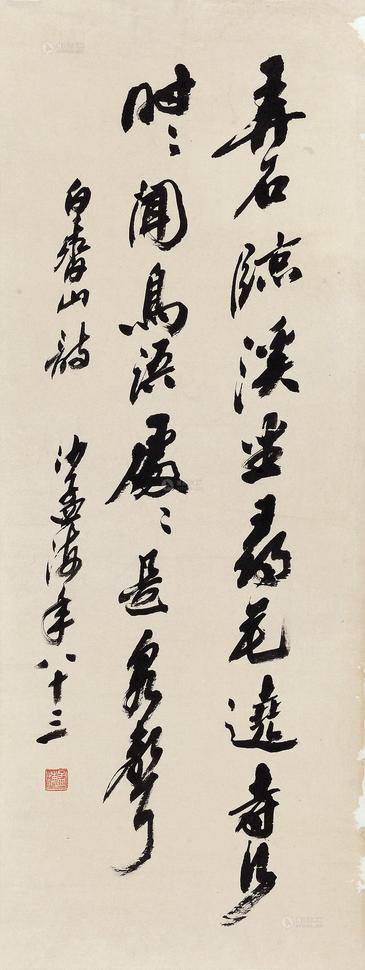 弄石臨溪坐尋花遶寺行
時〻聞鳥語處〻是泉聲
白香山詩 沙孟海年八十三